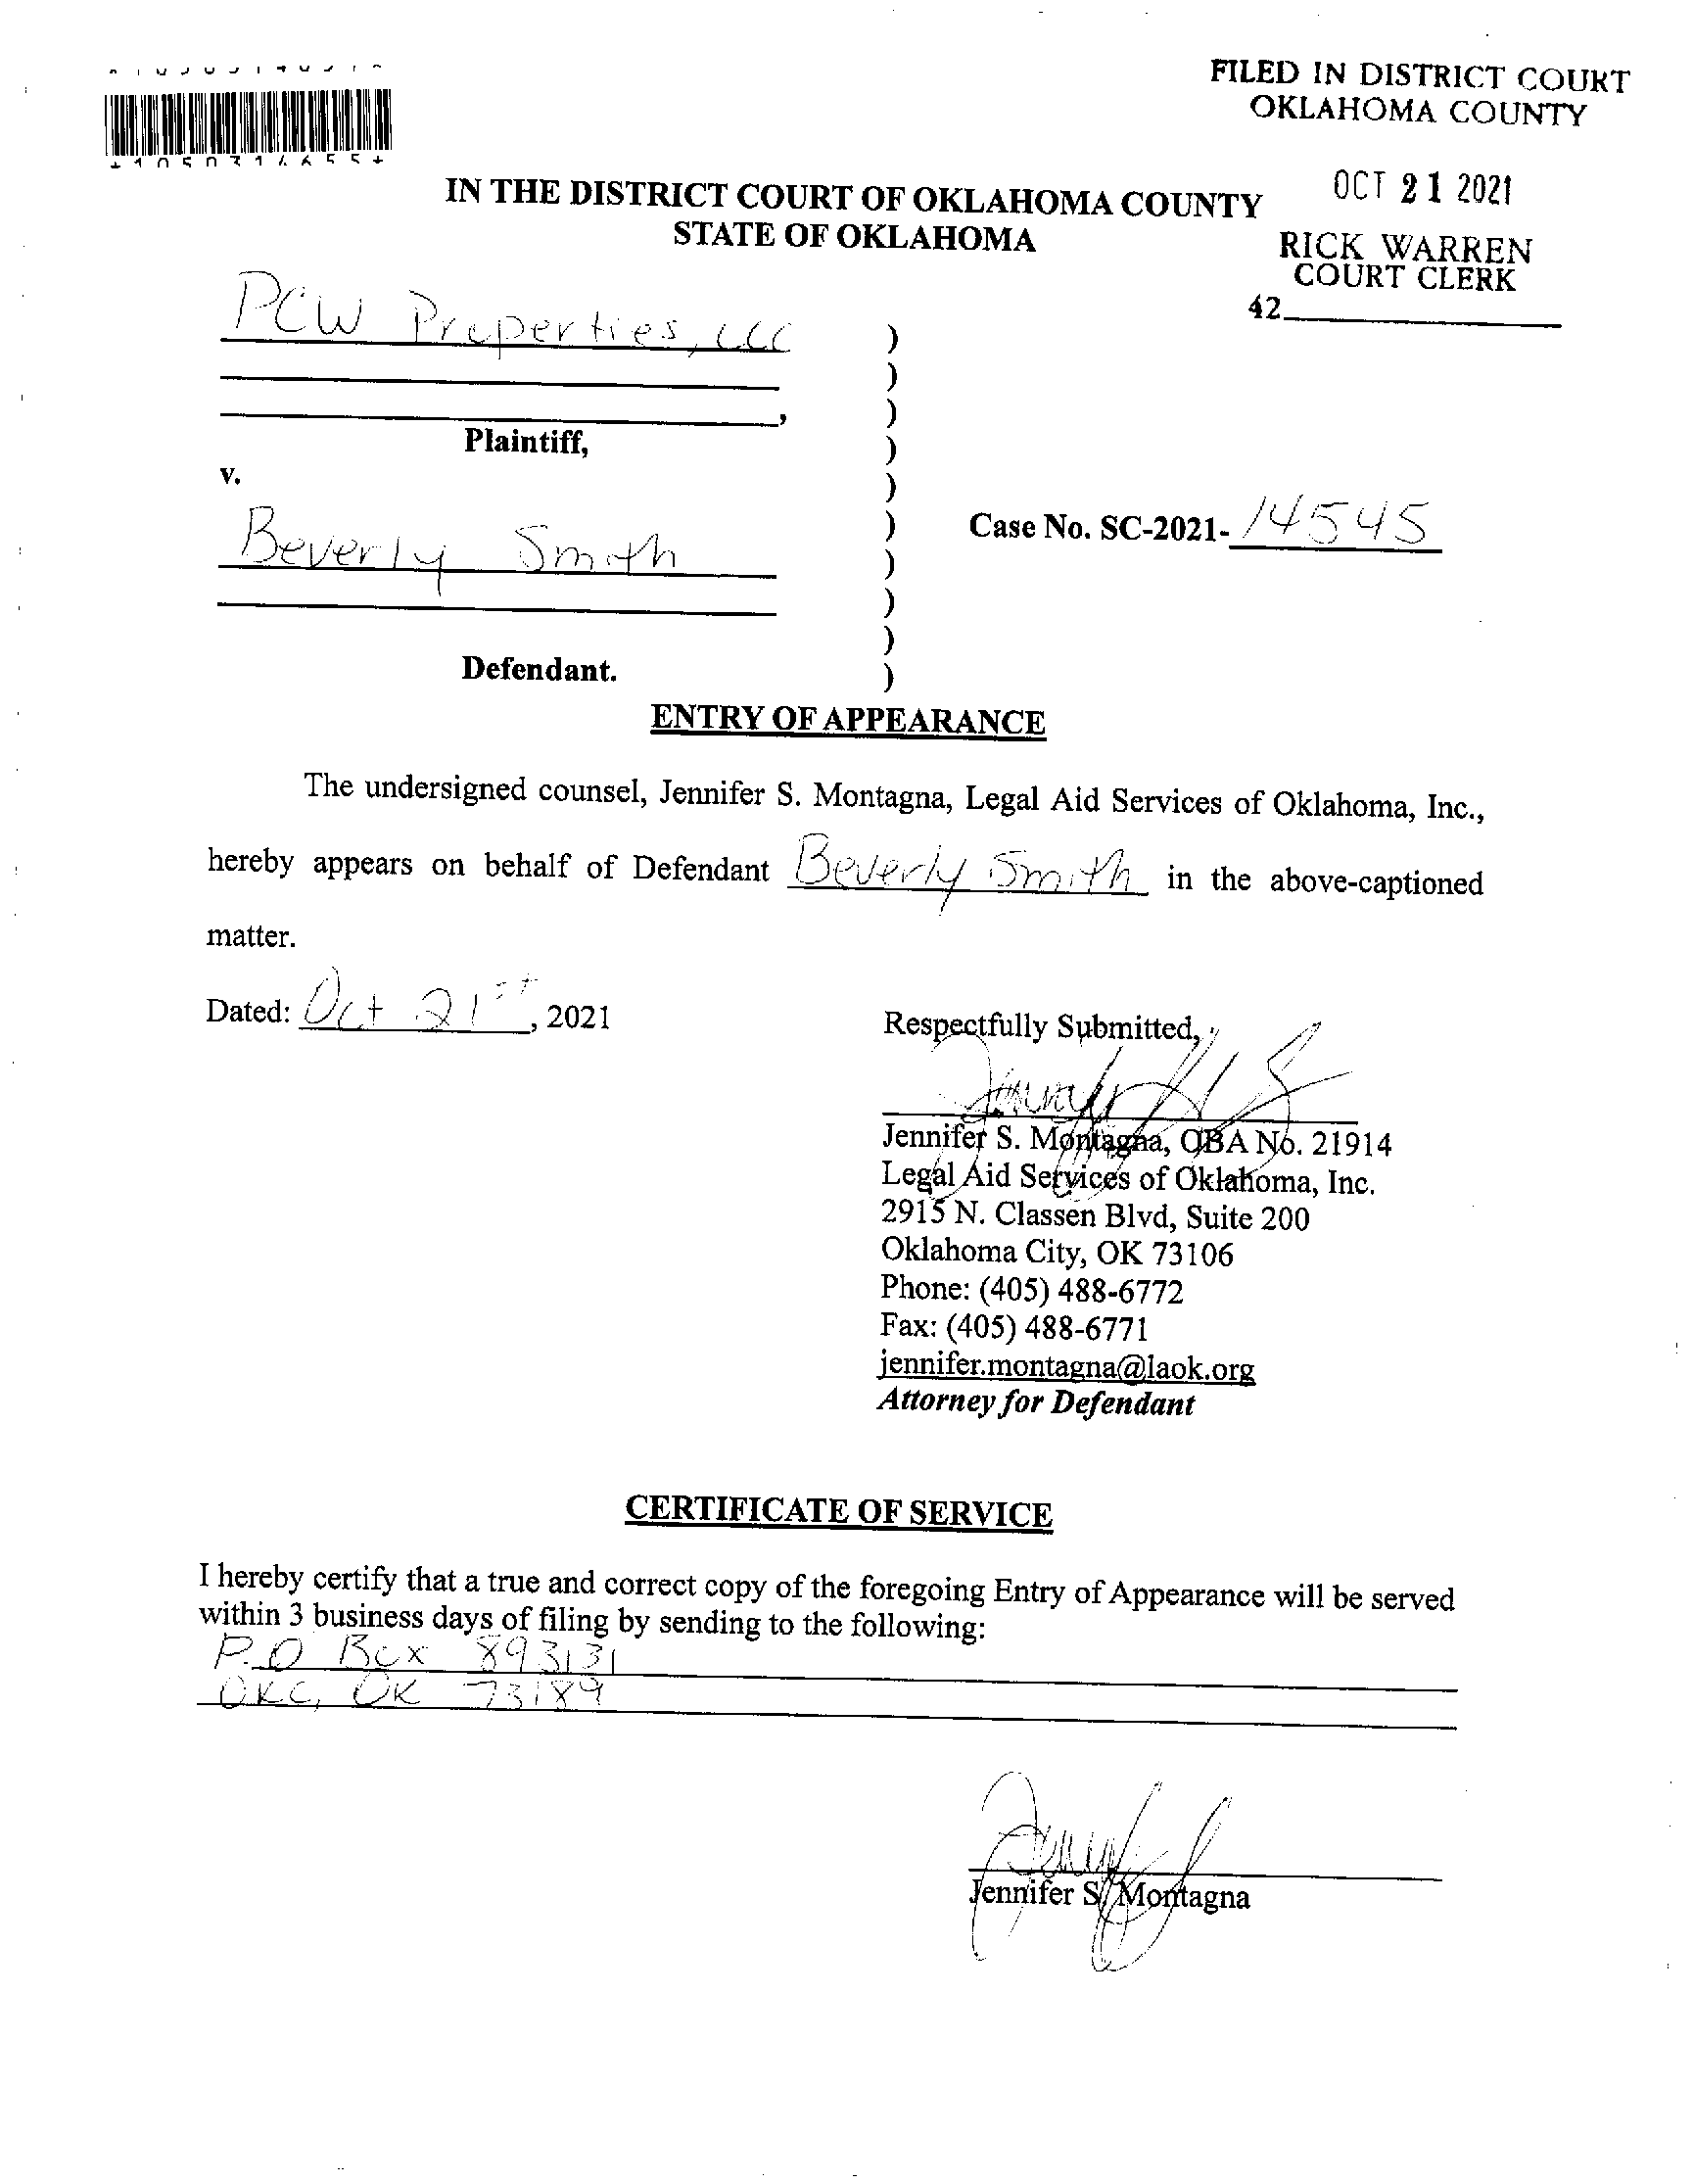 FILED IN DISTRICT COURT
OKLAHOMA COUNTY
OCT 21 2021
RICK WARREN
COURT CLERK
42
IN THE DISTRICT COURT OF OKLAHOMA COUNTY
STATE OF OKLAHOMA
PCW Properties, LLC )
)
, )
Plaintiff, )
v. )
Beverly Smith ) Case No. SC-2021- 14545
)
)
)
Defendant. )
ENTRY OF APPEARANCE
The undersigned counsel, Jennifer S. Montagna, Legal Aid Services of Oklahoma, Inc.,
hereby appears on behalf of Defendant Beverly Smith in the above-captioned
matter.
Dated: Oct 21st, 2021
Respectfully Submitted,
Jennifer S. Montagna, OBA No. 21914
Legal Aid Services of Oklahoma, Inc.
2915 N. Classen Blvd, Suite 200
Oklahoma City, OK 73106
Phone: (405) 488-6772
Fax: (405) 488-6771
jennifer.montagna@laok.org
Attorney for Defendant
CERTIFICATE OF SERVICE
I hereby certify that a true and correct copy of the foregoing Entry of Appearance will be served
within 3 business days of filing by sending to the following:
P.O Box 893131
OKC, OK 73189
Jennifer S. Montagna